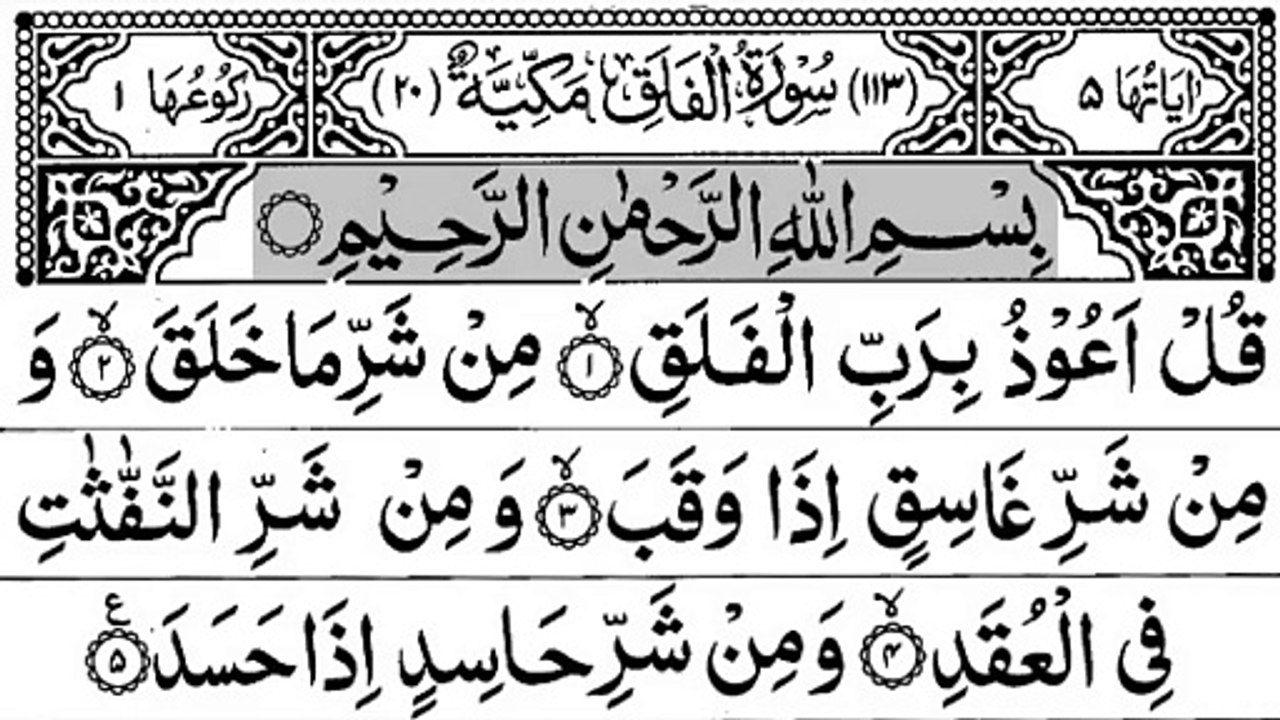 اٰيَاتُهَا ۵ (۱۱۳) سُوْرَةُ الْفَلَقِ مَكِّيَّةٌ (۲۰) رُكُوْعُهَا ۱
بِسْمِ اللّٰهِ الرَّحْمٰنِ الرَّحِيْمِ ۝
قُلْ اَعُوْذُ بِرَبِّ الْفَلَقِ ۙ﴿۱﴾ مِنْ شَرِّ مَا خَلَقَ ۙ﴿۲﴾ وَ
مِنْ شَرِّ غَاسِقٍ اِذَا وَقَبَ ۙ﴿۳﴾ وَ مِنْ شَرِّ النَّفّٰثٰتِ
فِى الْعُقَدِ ۙ﴿۴﴾ وَ مِنْ شَرِّ حَاسِدٍ اِذَا حَسَدَ ﴿۵﴾ ع